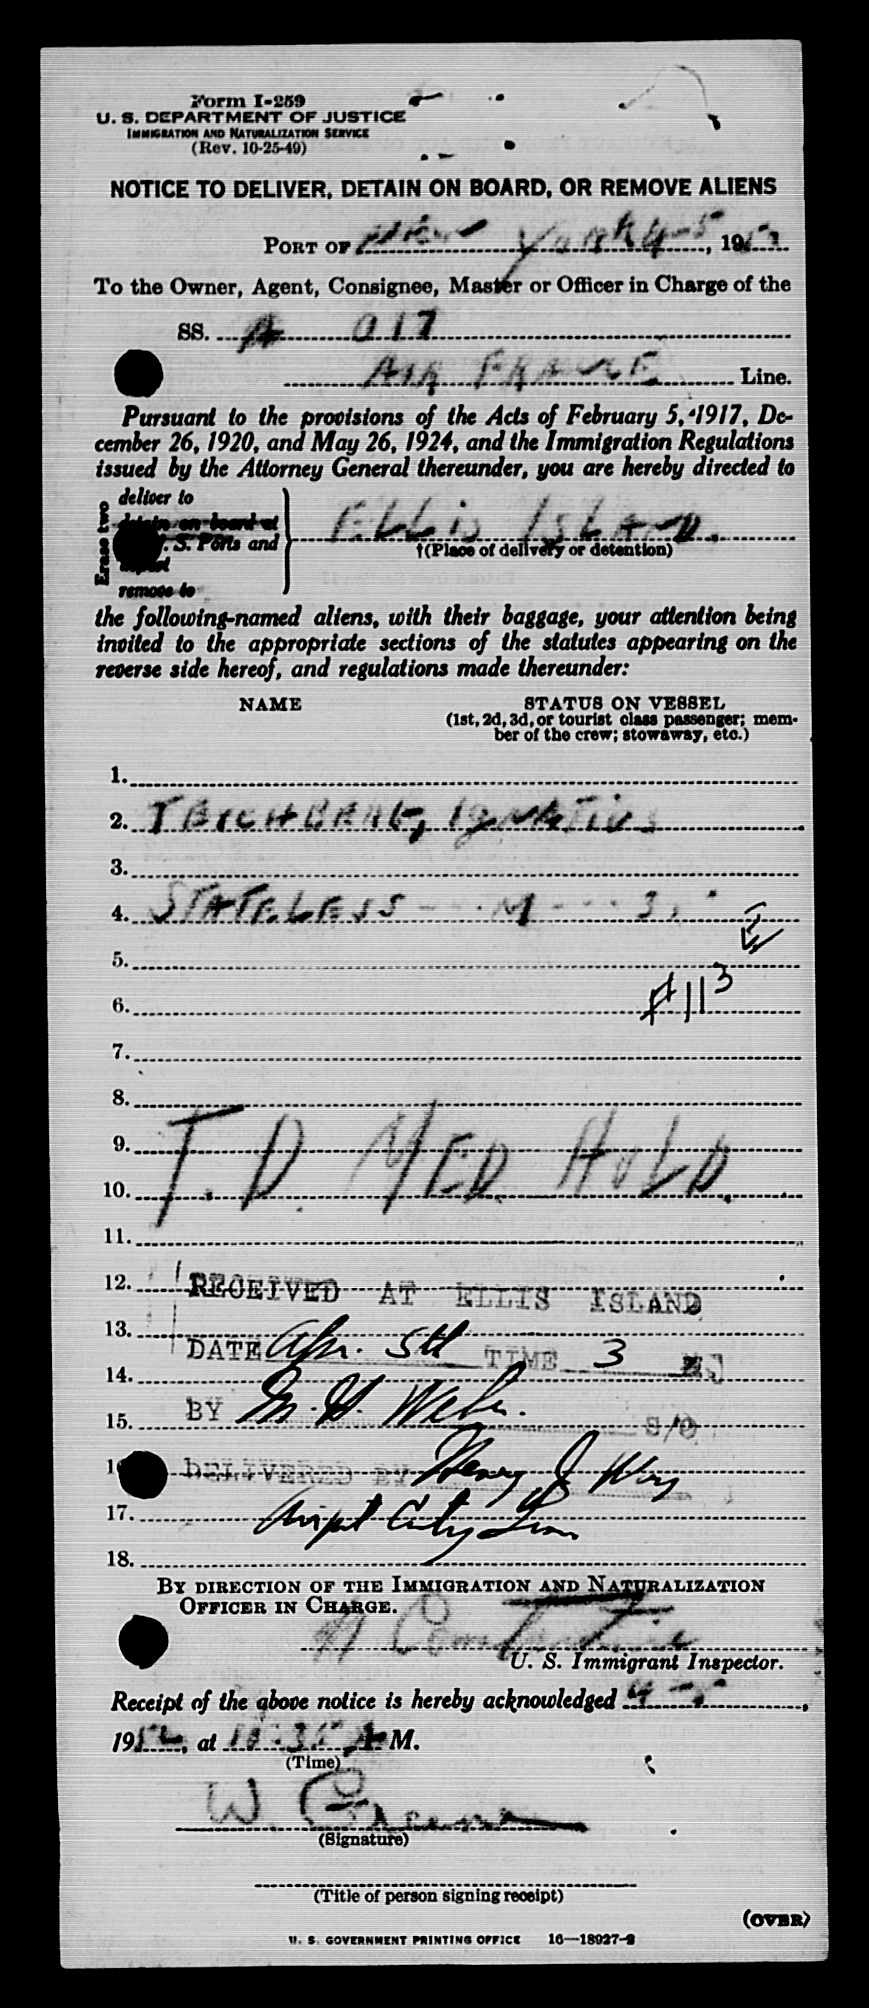 Form I-259
U. S. DEPARTMENT OF JUSTICE
IMMIGRATION AND NATURALIZATION SERVICE
(Rev. 10-25-49)
NOTICE TO DELIVER, DETAIN ON BOARD, OR REMOVE ALIENS
PORT OF NEW YORK 4-5, 195
To the Owner, Agent, Consignee, Master or Officer in Charge of the
SS. A 017
AIR FRANCE Line.
Pursuant to the provisions of the Acts of February 5, 1917, De-
cember 26, 1920, and May 26, 1924, and the Immigration Regulations
issued by the Attorney General thereunder, you are hereby directed to
Erase two
deliver to
detain on board at
U. S. Ports and
deport
remove to
ELLIS ISLAND.
†(Place of delivery or detention)
the following-named aliens, with their baggage, your attention being
invited to the appropriate sections of the statutes appearing on the
reverse side hereof, and regulations made thereunder:
NAME STATUS ON VESSEL
(1st, 2d, 3d, or tourist class passenger; mem-
ber of the crew; stowaway, etc.)
1.
2. Ignatius
3.
4. STATELESS - - - M - - - 3.
5.
6. #113
7.
8.
9. T. D. MED. HOLD.
10.
11.
12. RECEIVED AT ELLIS ISLAND
13. DATE Apr. 5th TIME 3
14.
15. BY M. H. Weber.
16. DELIVERED BY Henry J
17.
18.
BY DIRECTION OF THE IMMIGRATION AND NATURALIZATION
OFFICER IN CHARGE.
U. S. Immigrant Inspector.
Receipt of the above notice is hereby acknowledged 4-5,
195, at A M.
(Time)
W. Greene
(Signature)
(Title of person signing receipt)
(OVER)
U. S. GOVERNMENT PRINTING OFFICE 16—18927-2